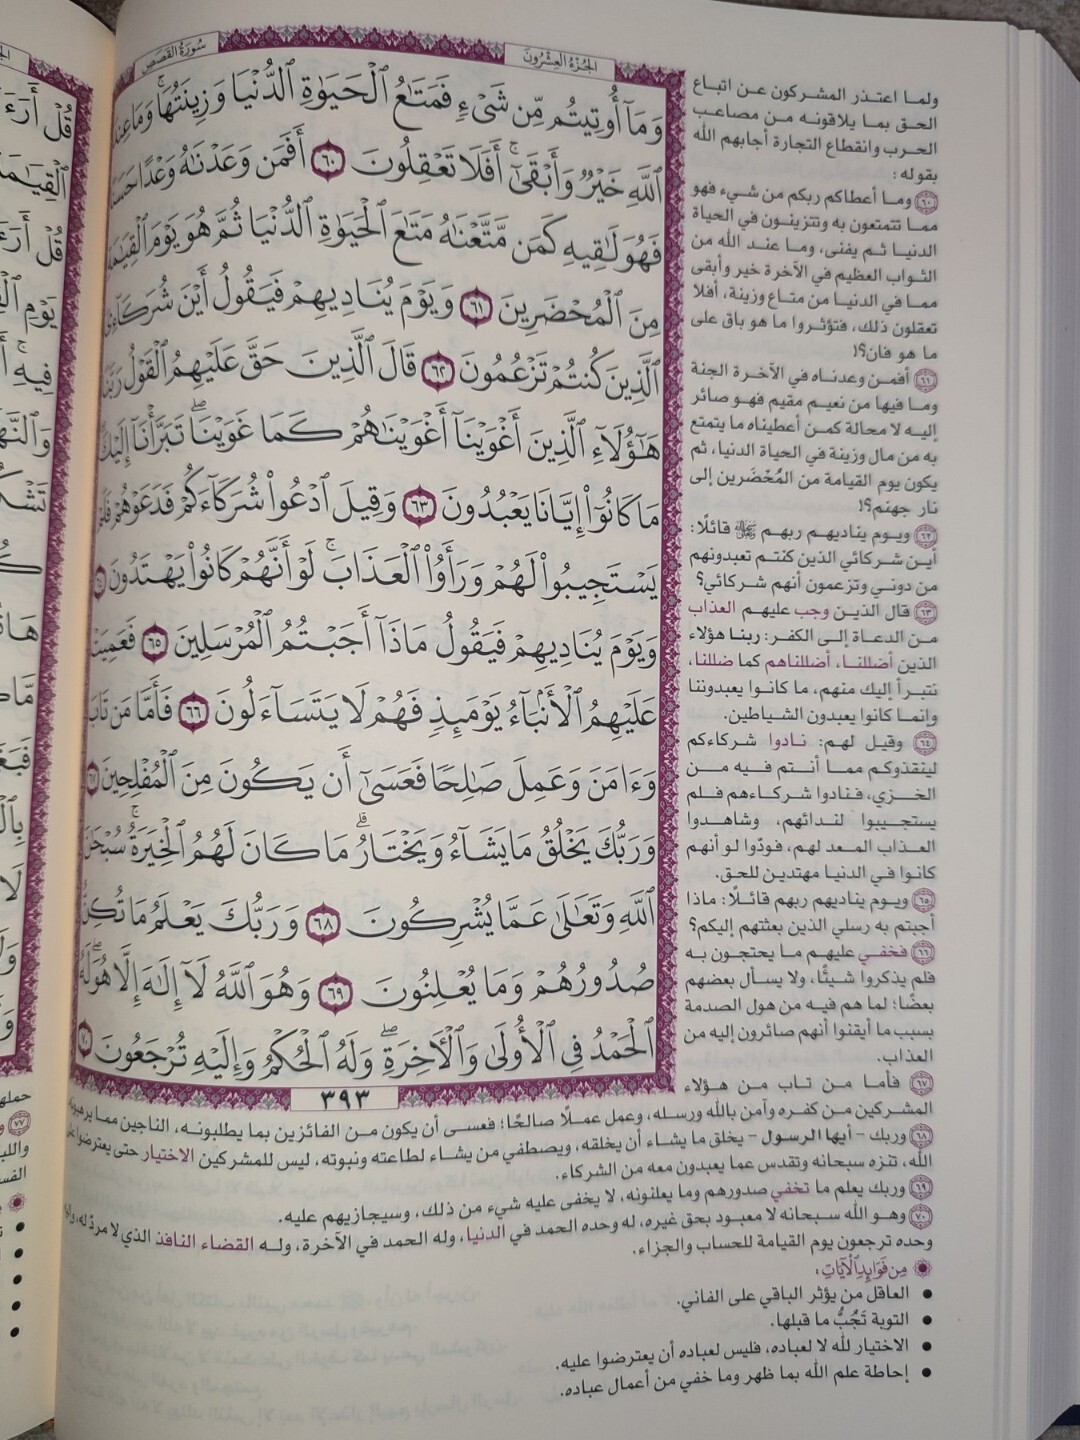 سورة القصص
الجزء العشرون
وَمَآ أُوتِيتُم مِّن شَىْءٍ فَمَتَـٰعُ ٱلْحَيَوٰةِ ٱلدُّنْيَا وَزِينَتُهَا ۚ وَمَا عِندَ
ٱللَّهِ خَيْرٌ وَأَبْقَىٰٓ ۚ أَفَلَا تَعْقِلُونَ ٦٠ أَفَمَن وَعَدْنَـٰهُ وَعْدًا حَسَنًا
فَهُوَ لَـٰقِيهِ كَمَن مَّتَّعْنَـٰهُ مَتَـٰعَ ٱلْحَيَوٰةِ ٱلدُّنْيَا ثُمَّ هُوَ يَوْمَ ٱلْقِيَـٰمَةِ
مِنَ ٱلْمُحْضَرِينَ ٦١ وَيَوْمَ يُنَادِيهِمْ فَيَقُولُ أَيْنَ شُرَكَآءِىَ
ٱلَّذِينَ كُنتُمْ تَزْعُمُونَ ٦٢ قَالَ ٱلَّذِينَ حَقَّ عَلَيْهِمُ ٱلْقَوْلُ رَبَّنَا
هَـٰٓؤُلَآءِ ٱلَّذِينَ أَغْوَيْنَآ أَغْوَيْنَـٰهُمْ كَمَا غَوَيْنَا ۖ تَبَرَّأْنَآ إِلَيْكَ ۖ
مَا كَانُوٓا۟ إِيَّانَا يَعْبُدُونَ ٦٣ وَقِيلَ ٱدْعُوا۟ شُرَكَآءَكُمْ فَدَعَوْهُمْ فَلَمْ
يَسْتَجِيبُوا۟ لَهُمْ وَرَأَوُا۟ ٱلْعَذَابَ ۚ لَوْ أَنَّهُمْ كَانُوا۟ يَهْتَدُونَ ٦٤
وَيَوْمَ يُنَادِيهِمْ فَيَقُولُ مَاذَآ أَجَبْتُمُ ٱلْمُرْسَلِينَ ٦٥ فَعَمِيَتْ
عَلَيْهِمُ ٱلْأَنۢبَآءُ يَوْمَئِذٍ فَهُمْ لَا يَتَسَآءَلُونَ ٦٦ فَأَمَّا مَن تَابَ
وَءَامَنَ وَعَمِلَ صَـٰلِحًا فَعَسَىٰٓ أَن يَكُونَ مِنَ ٱلْمُفْلِحِينَ ٦٧
وَرَبُّكَ يَخْلُقُ مَا يَشَآءُ وَيَخْتَارُ ۗ مَا كَانَ لَهُمُ ٱلْخِيَرَةُ ۚ سُبْحَـٰنَ
ٱللَّهِ وَتَعَـٰلَىٰ عَمَّا يُشْرِكُونَ ٦٨ وَرَبُّكَ يَعْلَمُ مَا تُكِنُّ
صُدُورُهُمْ وَمَا يُعْلِنُونَ ٦٩ وَهُوَ ٱللَّهُ لَآ إِلَـٰهَ إِلَّا هُوَ ۖ لَهُ
ٱلْحَمْدُ فِى ٱلْأُولَىٰ وَٱلْـَٔاخِرَةِ ۖ وَلَهُ ٱلْحُكْمُ وَإِلَيْهِ تُرْجَعُونَ ٧٠
٣٩٣
ولما اعتذر المشركون عن اتباع
الحق بما يلاقونه من مصاعب
الحرب وانقطاع التجارة أجابهم الله
بقوله:
٦٠ وما أعطاكم ربكم من شيء فهو
مما تتمتعون به وتتزينون في الحياة
الدنيا ثم يفنى، وما عند الله من
الثواب العظيم في الآخرة خير وأبقى
مما في الدنيا من متاع وزينة، أفلا
تعقلون ذلك، فتؤثروا ما هو باق على
ما هو فان؟!
٦١ أفمن وعدناه في الآخرة الجنة
وما فيها من نعيم مقيم فهو صائر
إليه لا محالة كمن أعطيناه ما يتمتع
به من مال وزينة في الحياة الدنيا، ثم
يكون يوم القيامة من المُحْضَرين إلى
نار جهنم؟!
٦٢ ويوم يناديهم ربهم قائلًا:
أين شركائي الذين كنتم تعبدونهم
من دوني وتزعمون أنهم شركائي؟
٦٣ قال الذين وجب عليهم العذاب
من الدعاة إلى الكفر: ربنا هؤلاء
الذين أضللنا، أضللناهم كما ضللنا،
نتبرأ إليك منهم، ما كانوا يعبدوننا
وإنما كانوا يعبدون الشياطين.
٦٤ وقيل لهم: نادوا شركاءكم
لينقذوكم مما أنتم فيه من
الخزي، فنادوا شركاءهم فلم
يستجيبوا لندائهم، وشاهدوا
العذاب المعد لهم، فودّوا لو أنهم
كانوا في الدنيا مهتدين للحق.
٦٥ ويوم يناديهم ربهم قائلًا: ماذا
أجبتم به رسلي الذين بعثتهم إليكم؟
٦٦ فخفي عليهم ما يحتجون به
فلم يذكروا شيئًا، ولا يسأل بعضهم
بعضًا؛ لما هم فيه من هول الصدمة
بسبب ما أيقنوا أنهم صائرون إليه من
العذاب.
٦٧ فأما من تاب من هؤلاء
المشركين من كفره وآمن بالله ورسله، وعمل عملًا صالحًا؛ فعسى أن يكون من الفائزين بما يطلبونه، الناجين مما يرهبونه.
٦٨ وربك - أيها الرسول - يخلق ما يشاء أن يخلقه، ويصطفي من يشاء لطاعته ونبوته، ليس للمشركين الاختيار حتى يعترضوا على
الله، تنزه سبحانه وتقدس عما يعبدون معه من الشركاء.
٦٩ وربك يعلم ما تخفي صدورهم وما يعلنونه، لا يخفى عليه شيء من ذلك، وسيجازيهم عليه.
٧٠ وهو الله سبحانه لا معبود بحق غيره، له وحده الحمد في الدنيا، وله الحمد في الآخرة، وله القضاء النافذ الذي لا مردّ له،
وحده ترجعون يوم القيامة للحساب والجزاء.
من فوائد الآيات:
• العاقل من يؤثر الباقي على الفاني.
• التوبة تَجُبُّ ما قبلها.
• الاختيار لله لا لعباده، فليس لعباده أن يعترضوا عليه.
• إحاطة علم الله بما ظهر وما خفي من أعمال عباده.